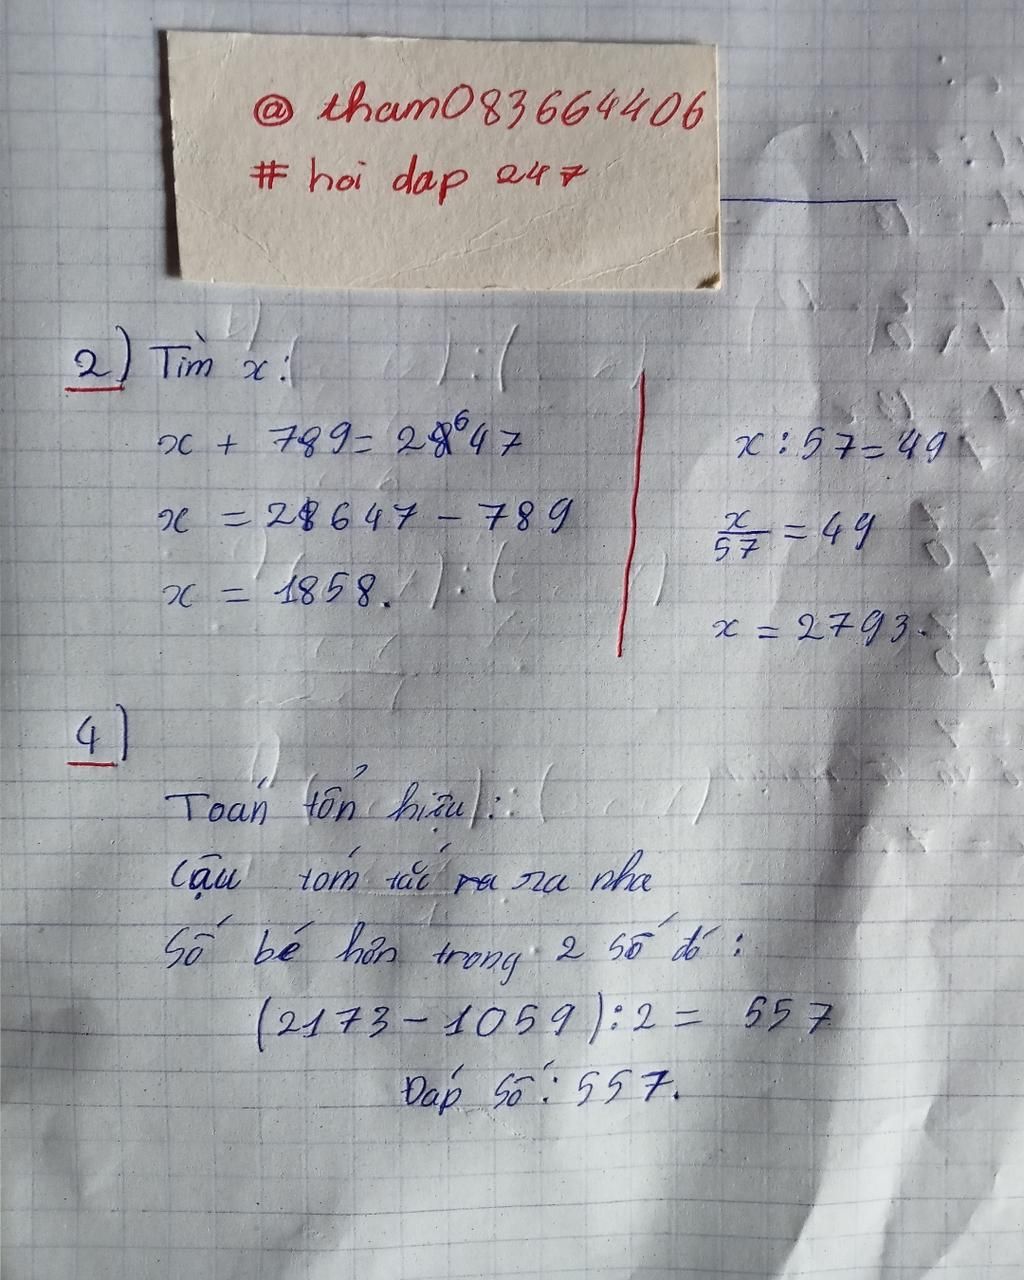 @ tham083664406
# hoi dap 247
2) Tìm x:
x + 789 = 2647
x = 2647 - 789
x = 1858.
x : 57 = 49
x/57 = 49
x = 2793.
4)
Toán tổn hiệu:
Cậu tóm tắc ra nha
Số bé hơn trong 2 số đó:
(2173 - 1059) : 2 = 557
Đáp số: 557.